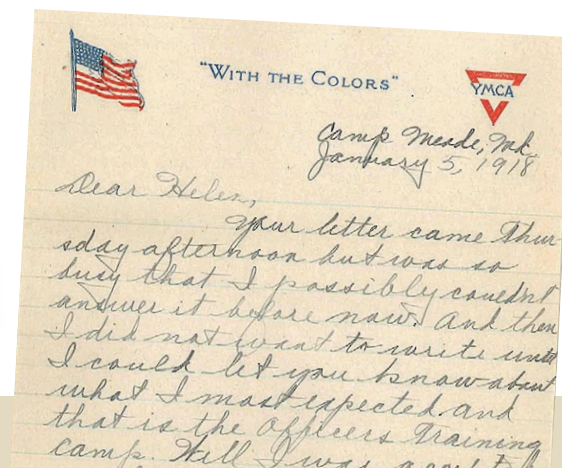 "WITH THE COLORS"
YMCA
Camp Meade, Md.
January 5, 1918
Dear Helen,
Your letter came Thur-
sday afternoon but was so
busy that I possibly couldn't
answer it before now. And then
I did not want to write until
I could let you know about
what I most expected and
that is the Officers Training
camp. Well I was